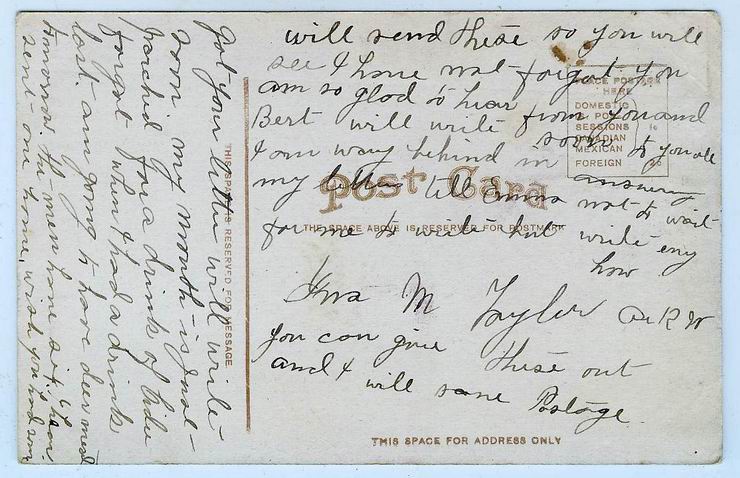 will send these so you will
see I have not forgot you
am so glad to hear
from you and
Bert will write soon to you all
I am way behind in answering
my letters tell Emma not to wait
for me to write but write eny
how
M Taylor
you can give these out
and I will save Postage
Got your letter will write
soon my mouth is just
parched for a drink of cider
forgot when I had a drink
last. am going to have deer meat
tomorrow. the men have six here
sent one home, wish you had some
Post Card
THE SPACE ABOVE IS RESERVED FOR POSTMARK
THIS SPACE IS RESERVED FOR MESSAGE
PLACE POSTAGE
HERE
DOMESTIC
POSSESSIONS
CANADIAN
MEXICAN
FOREIGN
THIS SPACE FOR ADDRESS ONLY